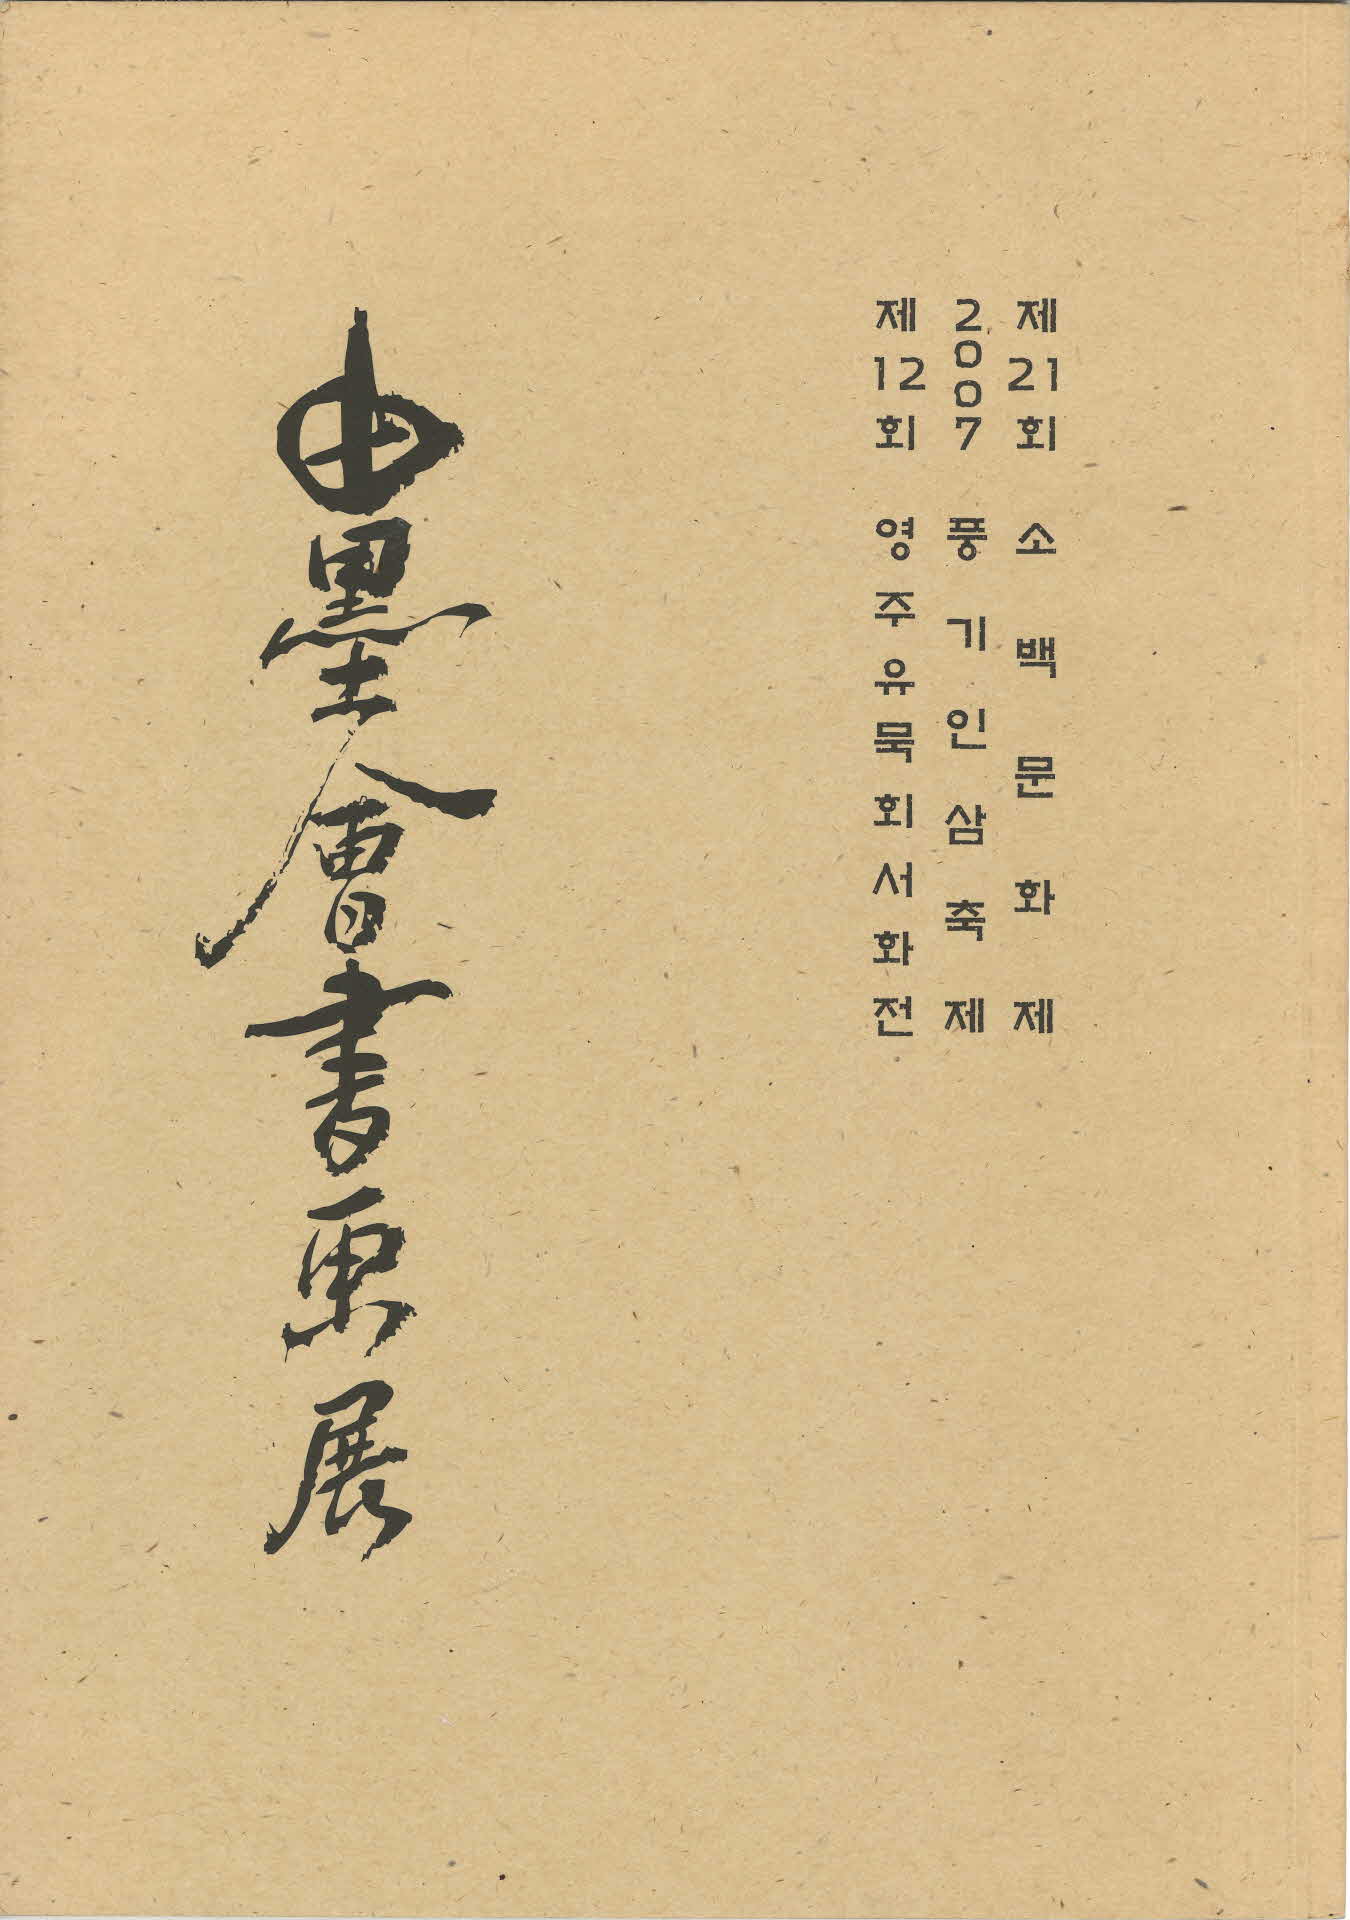 제21회 소백문화제
2007 풍기인삼축제
제12회 영주유묵회서화전
由墨會書畫展